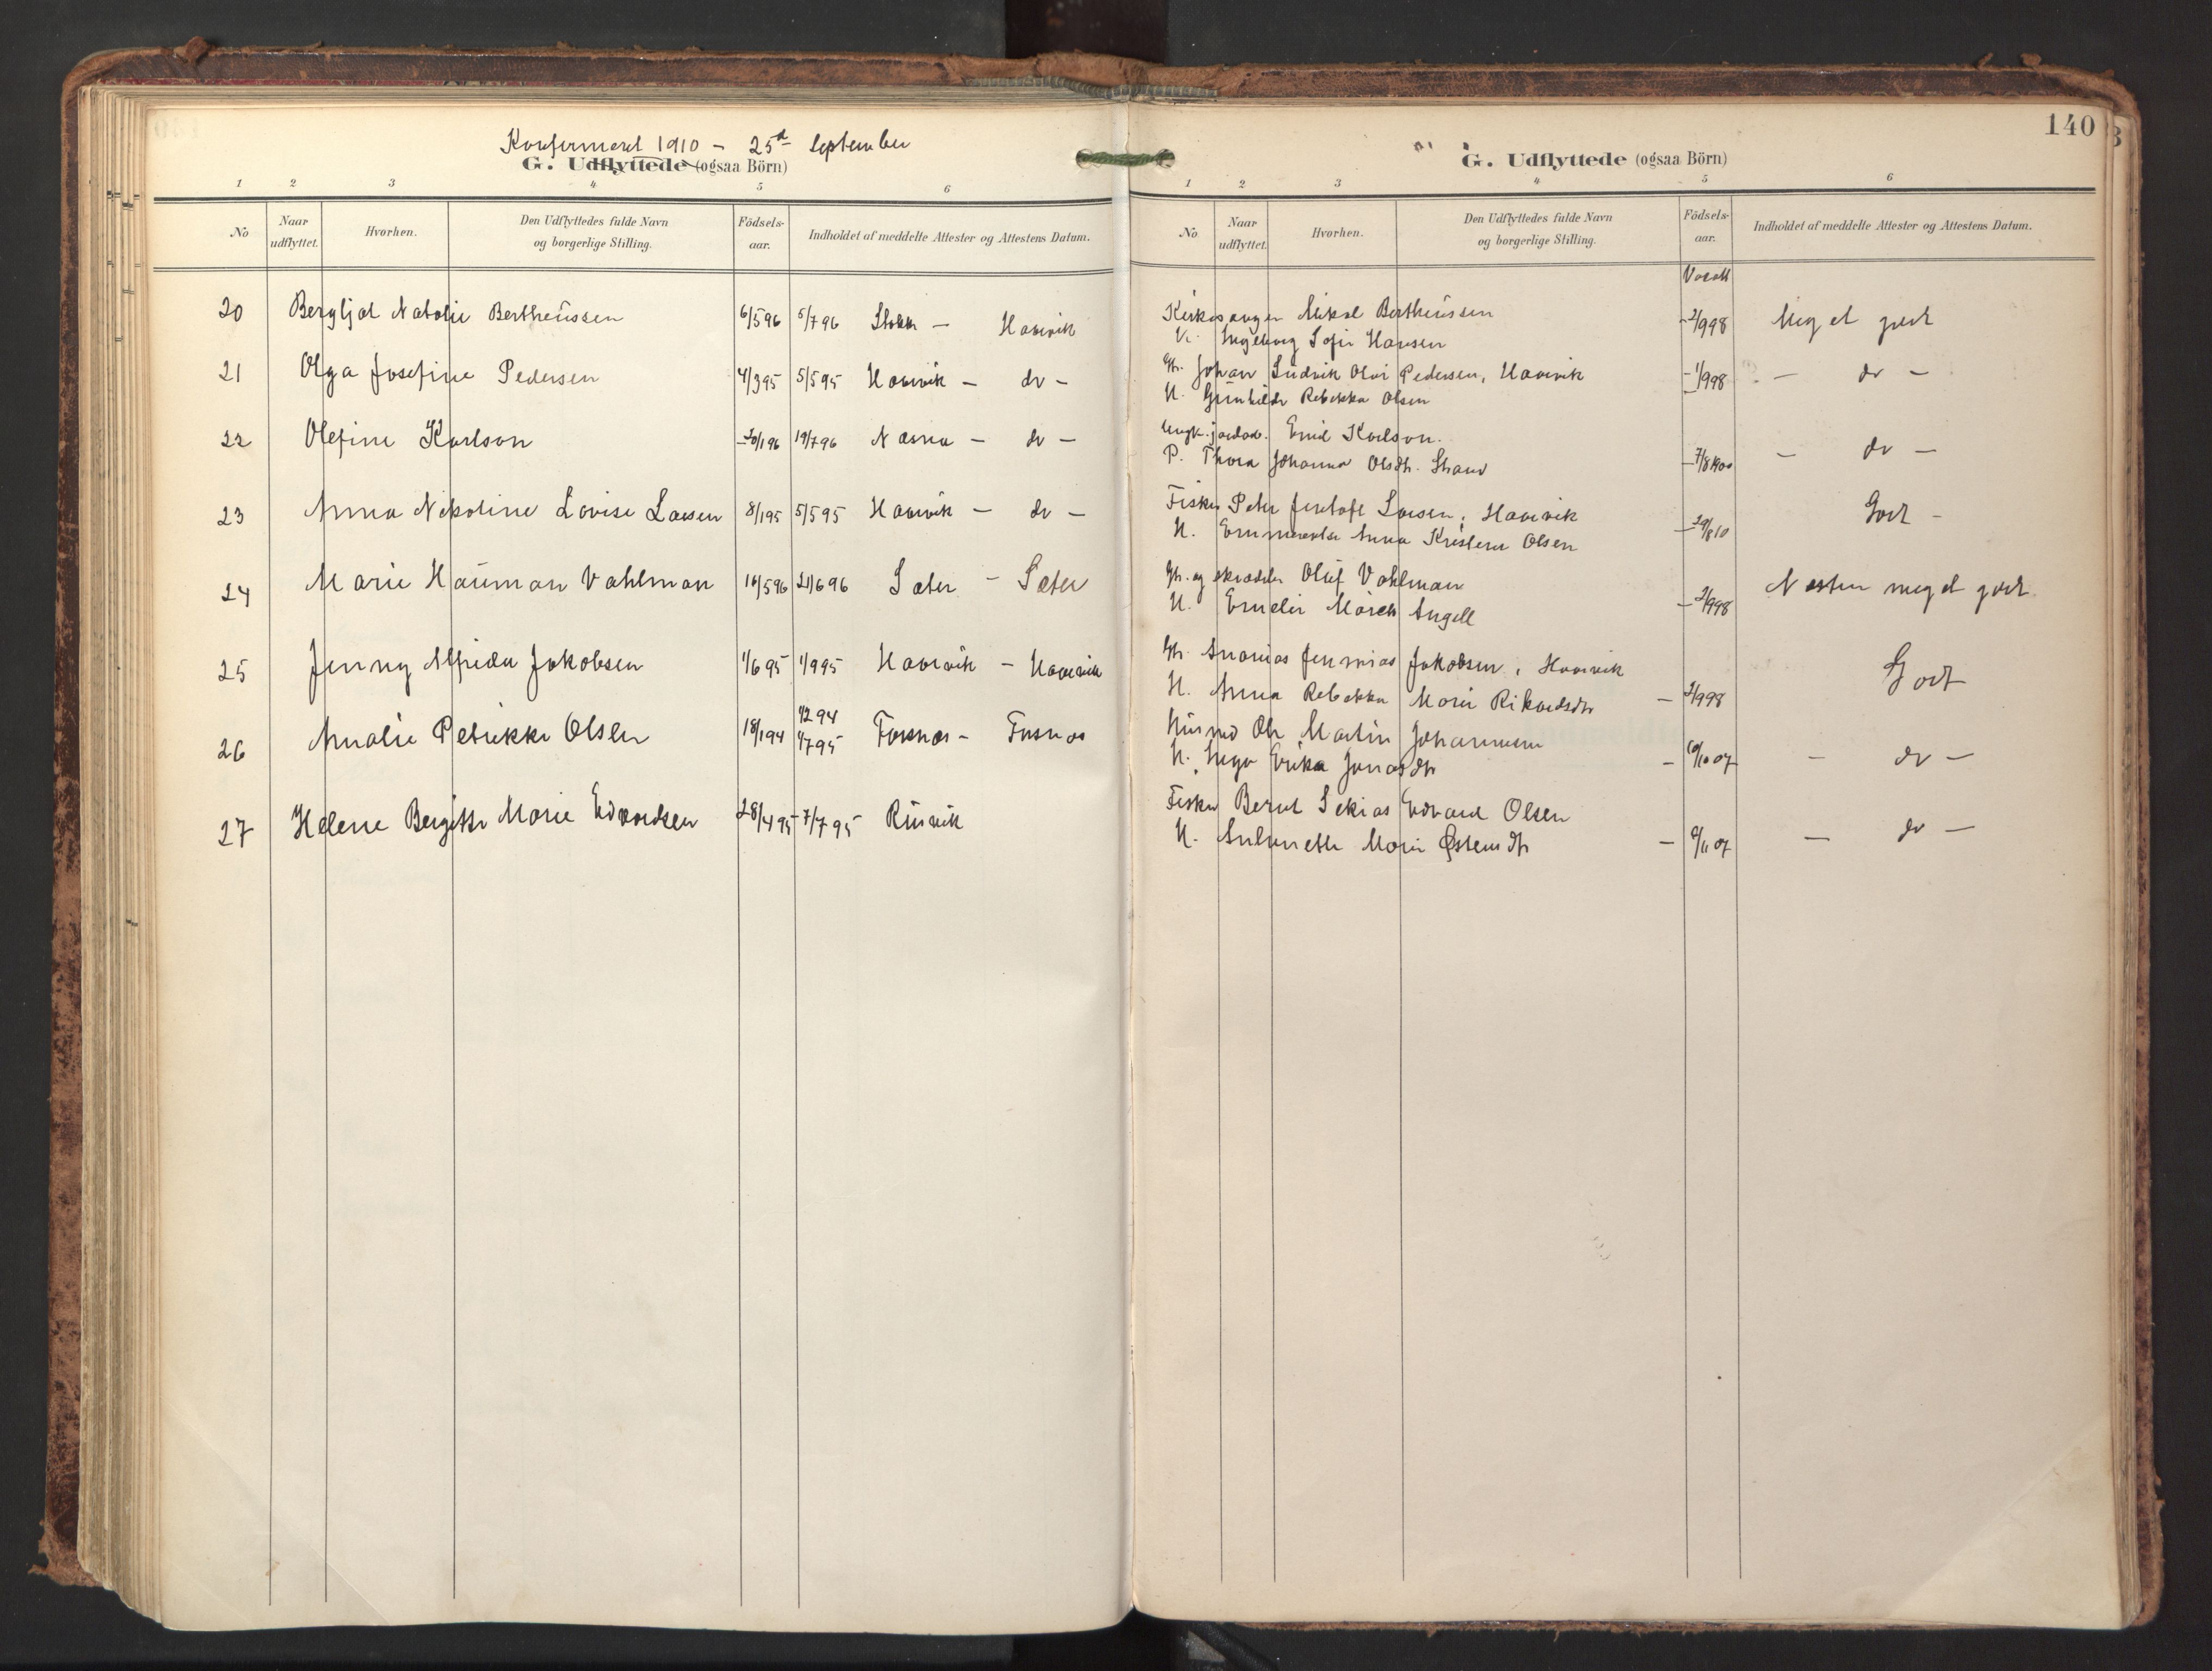 Konfermeret 1910 - 25d September
G. Udflyttede (ogsaa Börn)
1 2 3 4 5 6
No
Naar udflyttet.
Hvorhen.
Den Udflyttedes fulde Navn og borgerlige Stilling.
Födsels-aar.
Indholdet af meddelte Attester og Attestens Datum.
20 Bergljot Natalie Bertheussen 6/5 96 5/7 96 Stokk - Haavik
21 Olga Josefine Pedersen 4/3 95 5/5 95 Haavik - do -
22 Olefine Karlson 20/1 96 19/7 96 - do -
23 Anna Nikoline Lovise Larsen 8/1 95 5/5 95 Haavik - do -
24 Marie Hauman Vahlman 16/5 96 21/6 96 Sæter - Sæter
25 Jenny Alfrida Jakobsen 1/6 95 1/9 95 Haavik - Haavik
26 Amalie Petrikke Olsen 18/1 94 1/7 95 Fosnæs - Fosnæs
27 Helene Bergitte Marie Edvardsen 28/4 95 7/7 95 Rusvik
140
G. Udflyttede (ogsaa Börn)
1 2 3 4 5 6
No
Naar udflyttet.
Hvorhen.
Den Udflyttedes fulde Navn og borgerlige Stilling.
Födsels-aar.
Indholdet af meddelte Attester og Attestens Datum.
Kirkesanger Mikal Bertheussen
Ingeborg Sofie Hansen 2/9 98 Meget godt
Johan Ludvik Olai Pedersen, Haavik
H. Gunhilde Rebekka Olsen 1/9 98 - do -
Emil Karlson.
P. Thora Johanna Olsdtr. Strand 7/8 1900 - do -
Fisker Peter Larsen, Haavik
H. Anna Olsen 29/8 10 Godt -
Gbr. og skrædder Oluf Vahlman
H. Emelie Mørch Angell 2/9 98 Næsten meget godt
Gbr. Ananias Jenmias Jakobsen, Haavik
H. Anna Rebekka Marie Rikardsdtr - 2/9 98 Godt
Husmd Ole Martin Johannesen
H. Inga Erika Jonasdtr - 10/10 07 - do -
Fisker Bernt Edvard Olsen
H. Marie - 9/11 07 - do -